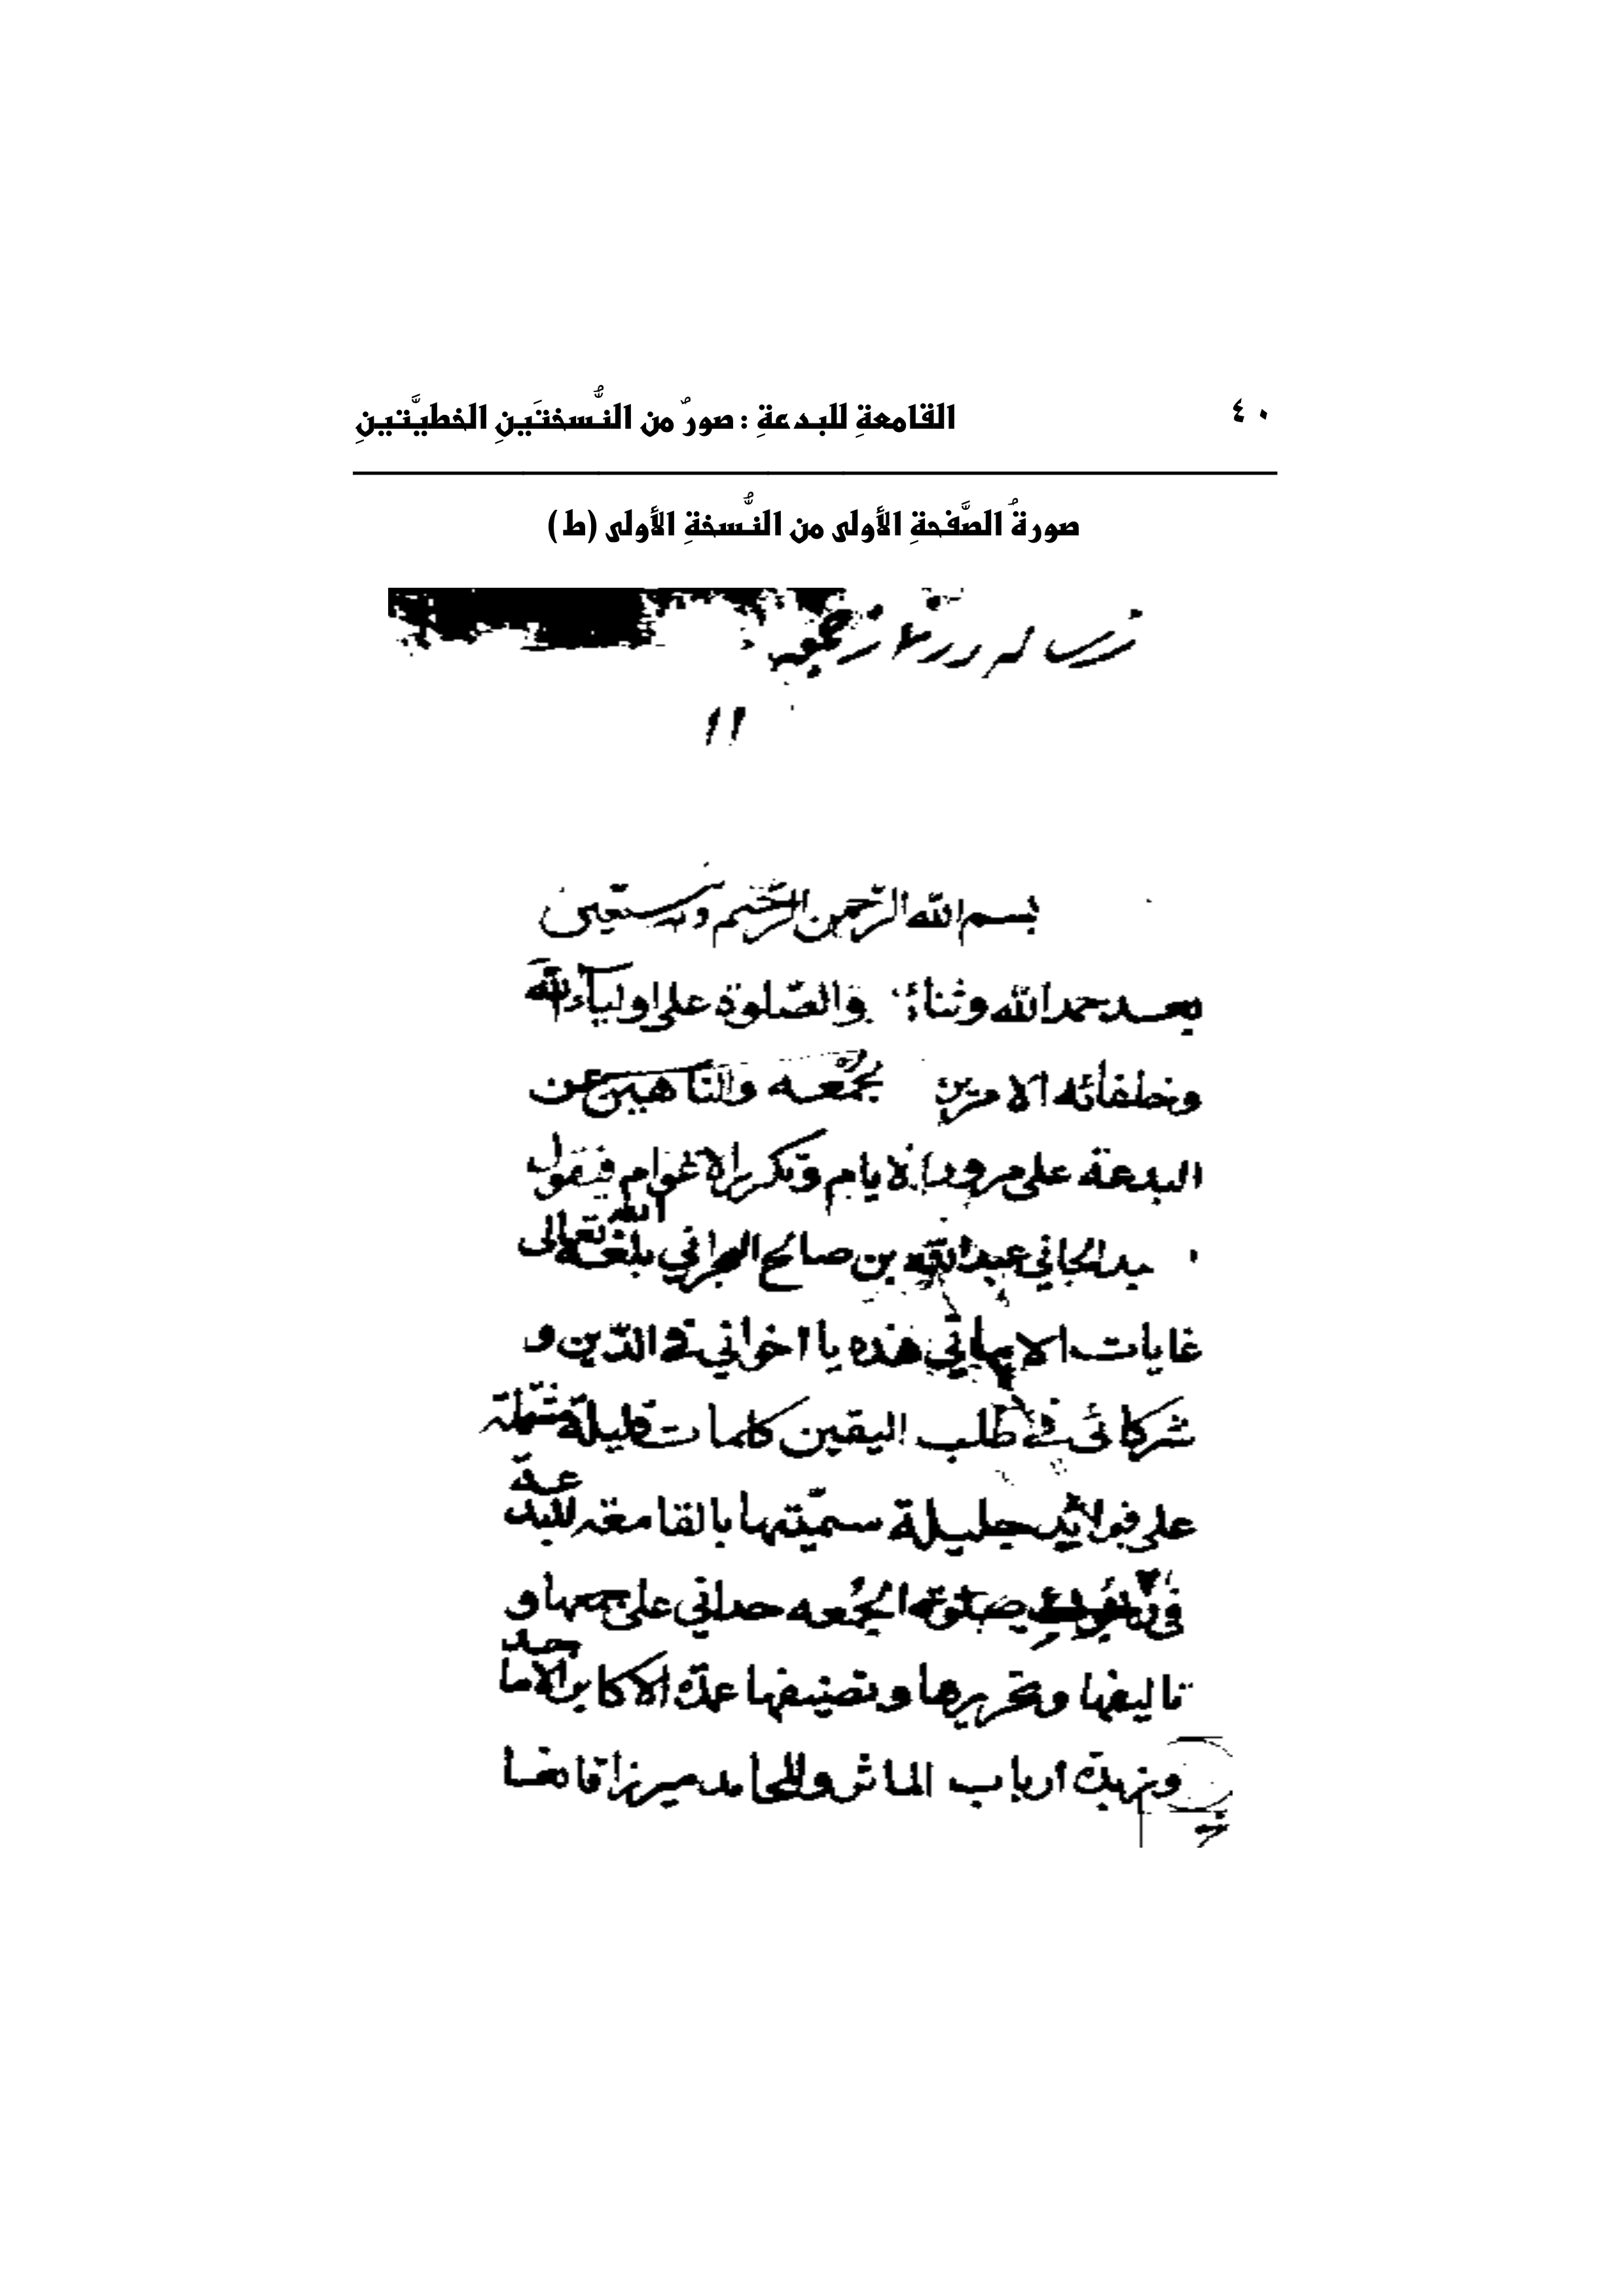 القامعةِ للبدعةِ : صورٌ من النُّسختَينِ الخطيَّتينِ ٤٠
صورةُ الصَّفحةِ الأولى من النُّسخةِ الأولى (ط)
رساله در نماز جمعه
١١
بسم الله الرّحمن الرّحيم وبه نستعين
بعد حمد الله وثنائه والصّلوة على اولياء الله
وخلفائه الامرين بجمعه والنّاهين عن
البدعة على مرور الايام وتكرر الاعوام فيقول
الجاني عبد الله بن صالح البحراني بلغه الله تعالى
غايات الاماني هذه يا اخواني في الدّين و
شركائى في طلب اليقين كلمات قليلة مشتملة
على فوائد جليلة سمّيتها بالقامعة للبدعة
في صلوة الجمعه حداني على جمعها و
تاليفها وتحريرها وتصنيفها عمدة الاكابر الاماجد
وزبدة ارباب المآثر والمحامد ميرزا